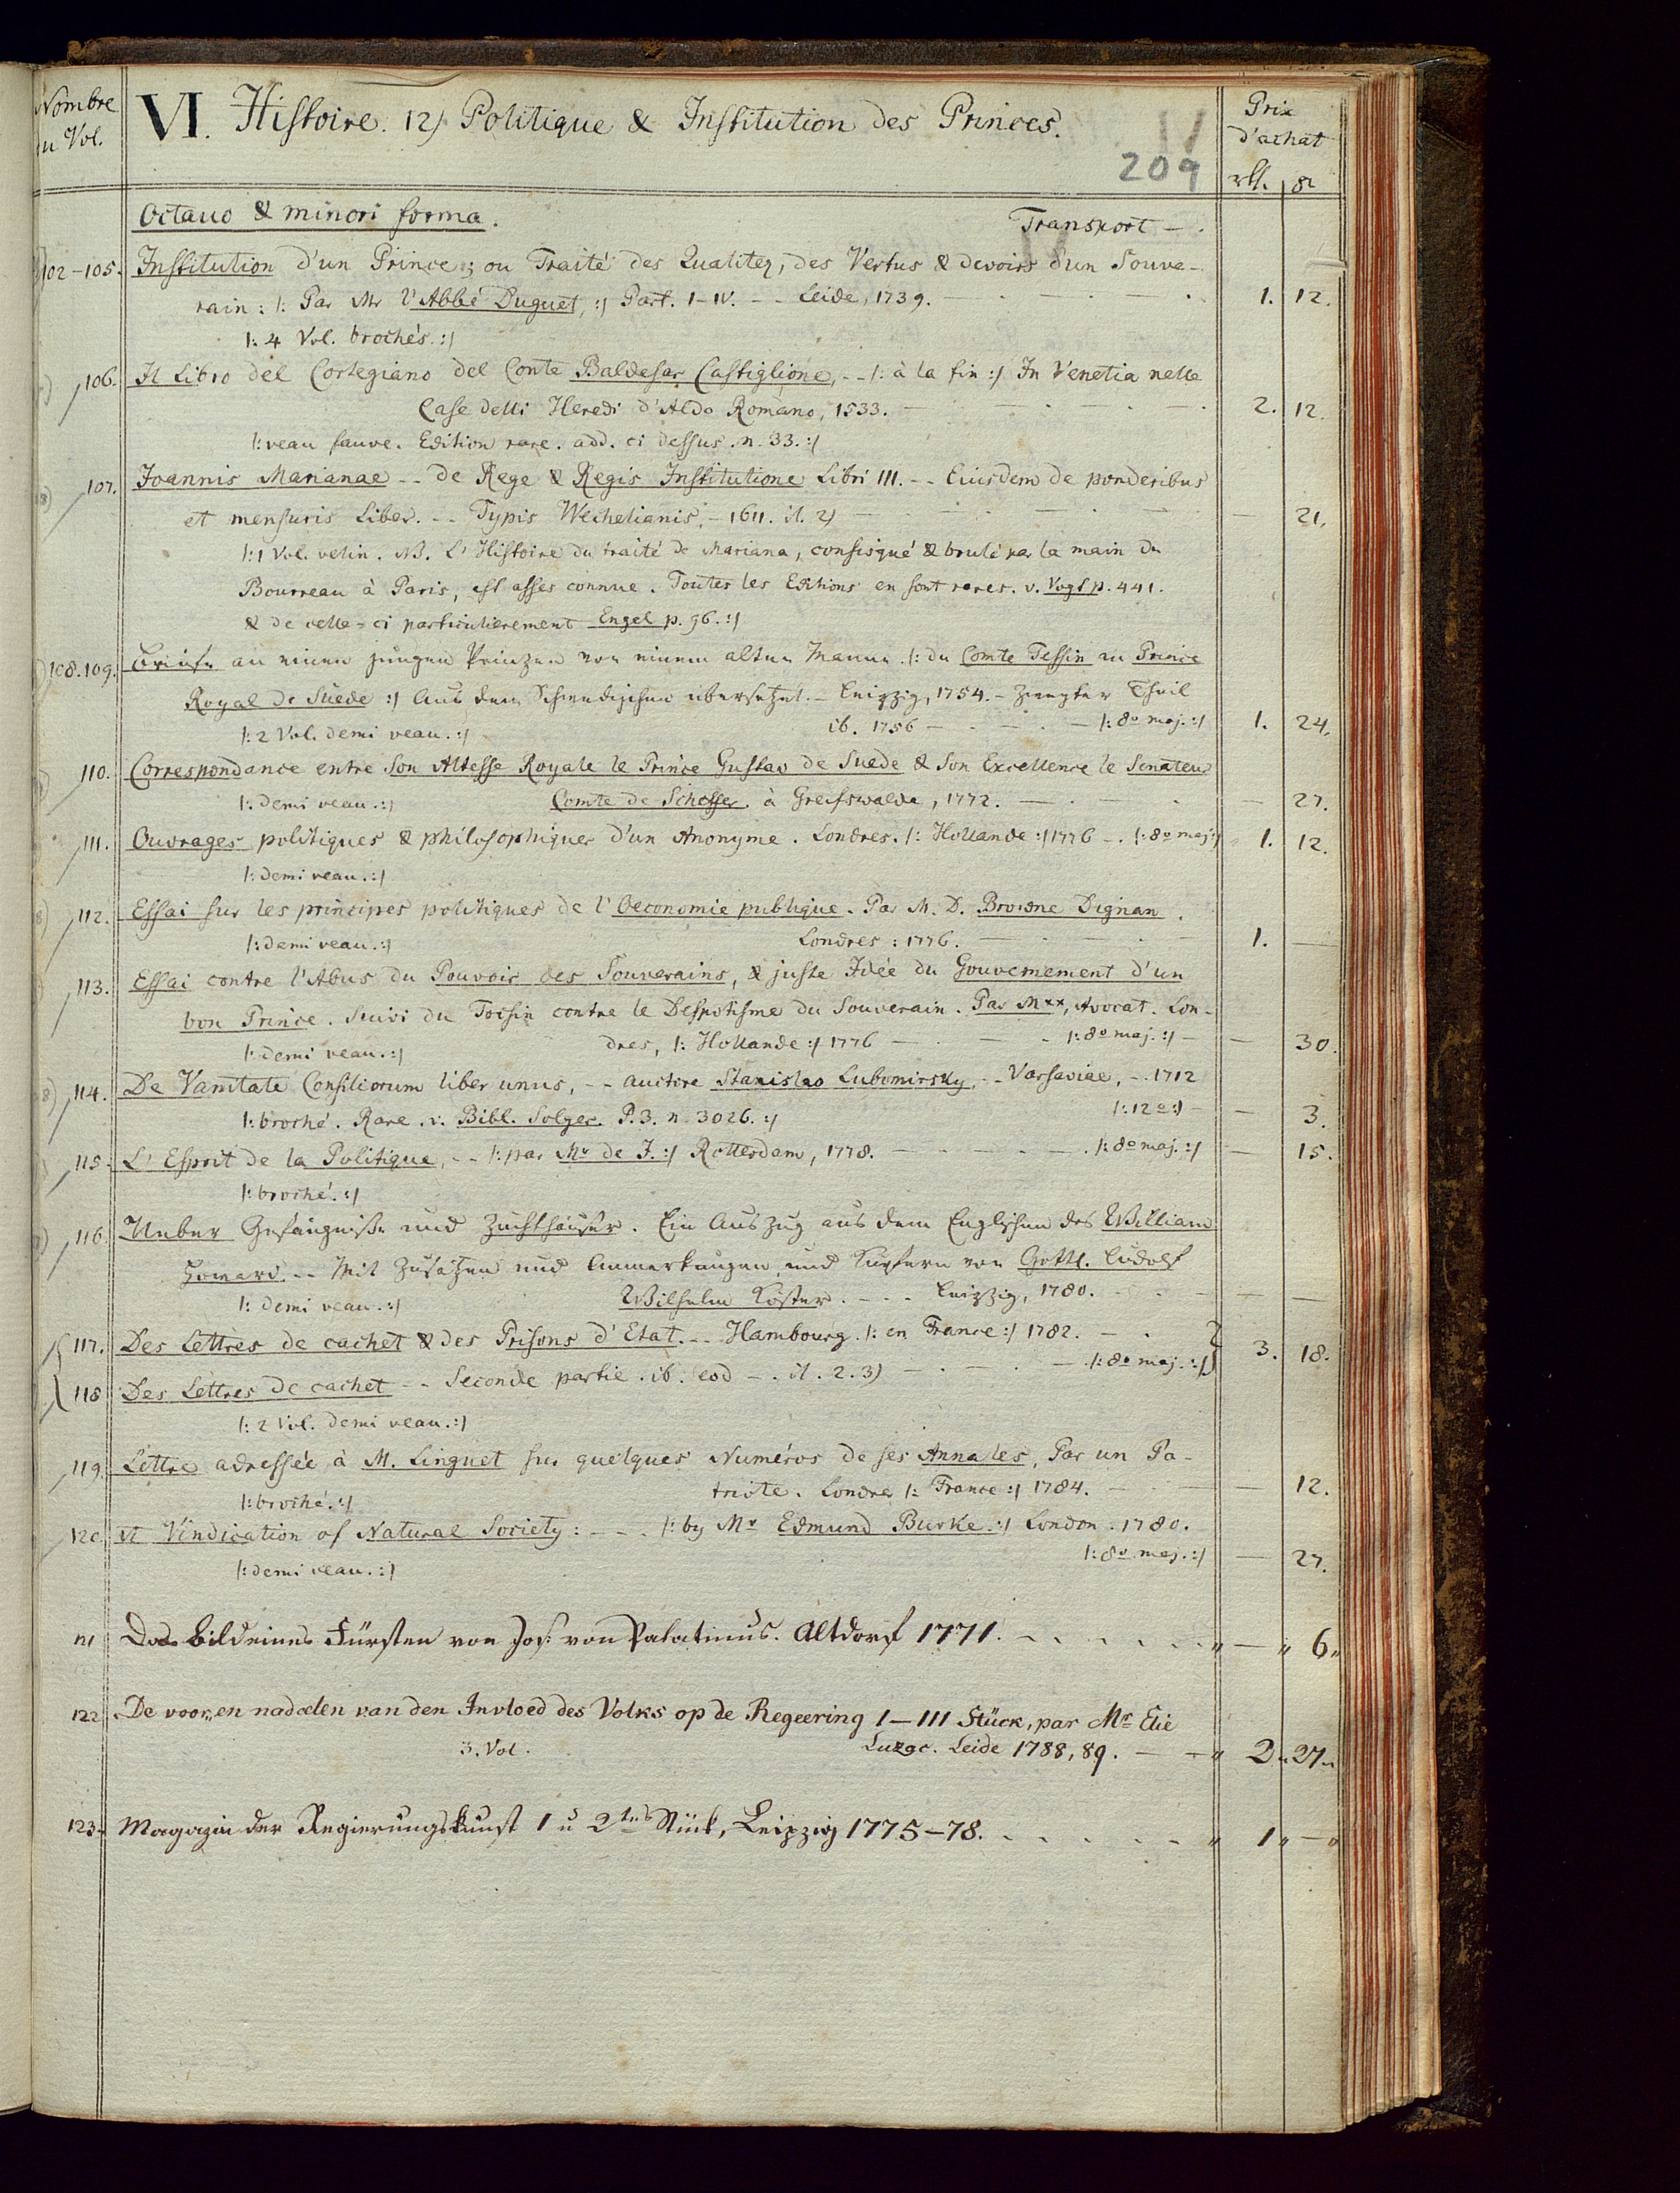 Nombre
du Vol.
VI. Histoire. 12) Politique & Institution des Princes.
Prix
d'achat
11
209
rtl. gr
Octavo & minori forma. Transport - .
102-105. Institution d'un Prince; ou Traité des Qualitez, des Vertus & devoirs d'un Souve-
rain: |: Par Mr l'Abbé Duguet, :| Part. I-IV. -- Leide, 1739. 1. 12.
|: 4 Vol. brochés. :|
106. Il Libro del Cortegiano del Conte Baldesar Castiglione, -- |: à la fin :| In Venetia nelle
Case delli Heredi d'Aldo Romano, 1533. 2. 12.
|: veau fauve. Edition rare. add. ci dessus. n. 33. :|
107. Joannis Marianae -- de Rege & Regis Institutione Libri III. -- Eiusdem de ponderibus
et mensuris Liber. -- Typis Wechelianis, - 1611. it. 2) — 21.
|: 1 Vol. velin. NB. L'Histoire du traité de Mariana, confisqué & brulé par la main du
Bourreau à Paris, est assés connue. Toutes les Editions en sont rares. v. Vogt p. 441.
& de celle-ci particulierement Engel p. 96. :|
108.109. Briefe an einen jungen Prinzen von einem alten Manne. |: du Comte Tessin au Prince
Royal de Suède :| Aus dem Schwedischen übersetzet. - Leipzig, 1754. - Zweyter Theil
|: 2 Vol. demi veau. :| ib. 1756 - |: 8o maj. :| 1. 24.
110. Correspondance entre Son Altesse Royale le Prince Gustav de Suede & Son Excellence le Senateur
|: demi veau. :| Comte de Scheffer. à Greifswalde, 1772. — 27.
111. Ouvrages politiques & philosophiques d'un Anonyme. Londres. |: Hollande :| 1776 -. |: 8o maj :| 1. 12.
|: demi veau. :|
112. Essai sur les principes politiques de l'Oeconomie publique. Par M. D. Browne Dignan.
|: demi veau. :| Londres: 1776. 1. —
113. Essai contre l'Abus du Pouvoir des Souverains, & juste Idée du Gouvernement d'un
bon Prince. Suivi du Tocsin contre le Despotisme du Souverain. Par Mxx, Avocat. Lon-
|: demi veau. :| dres, |: Hollande :| 1776 |: 8o maj. :| — 30.
114. De Vanitate Consiliorum liber unus, -- auctore Stanislao Lubomirsky, -- Varsaviae, -. 1712
|: broché. Rare. v. Bibl. Solger. P. 3. n. 3026. :| |: 12o :| — 3.
115. L'Esprit de la Politique, -- |: par Mr de J. :| Rotterdam, 1778. |: 8o maj. :| — 15.
|: broché. :|
116. Ueber Gefängnisse und Zuchthäuser. Ein Auszug aus dem Englischen des William
Howard. -- Mit Zusätzen und Anmerkungen und Kupfern von Gottl. Ludolf
|: demi veau. :| Wilhelm Köster. --- Leipzig, 1780. — —
117. Des Lettres de cachet & des Prisons d'Etat. -- Hambourg. |: en France :| 1782. 3. 18.
118 Des Lettres de cachet -- Seconde partie. ib. eod -. it. 2. 3) |: 8o maj. :|
|: 2 Vol. demi veau. :|
119. Lettre adressée à M. Linguet sur quelques Numéros de ses Annales, Par un Pa-
|: broché. :| triote. Londres |: France :| 1784. — 12.
120. A Vindication of Natural Society: --- |: by Mr Edmund Burke. :| London. 1780.
|: demi veau. :| |: 8o maj. :| — 27.
121 Das Bild eines Fürsten von Jos. von Palatinus. Altdorf 1771. „ — „ 6„
122 De voor„en nadeelen van den Invloed des Volks op de Regeering I—III Stück, par Mr Elie
3. Vol. Luzac. Leide 1788, 89. — „ 2„ 27„
123. Magazin der Regierungskunst 1 u 2tes Stück, Leipzig 1775-78. „ 1„ — „